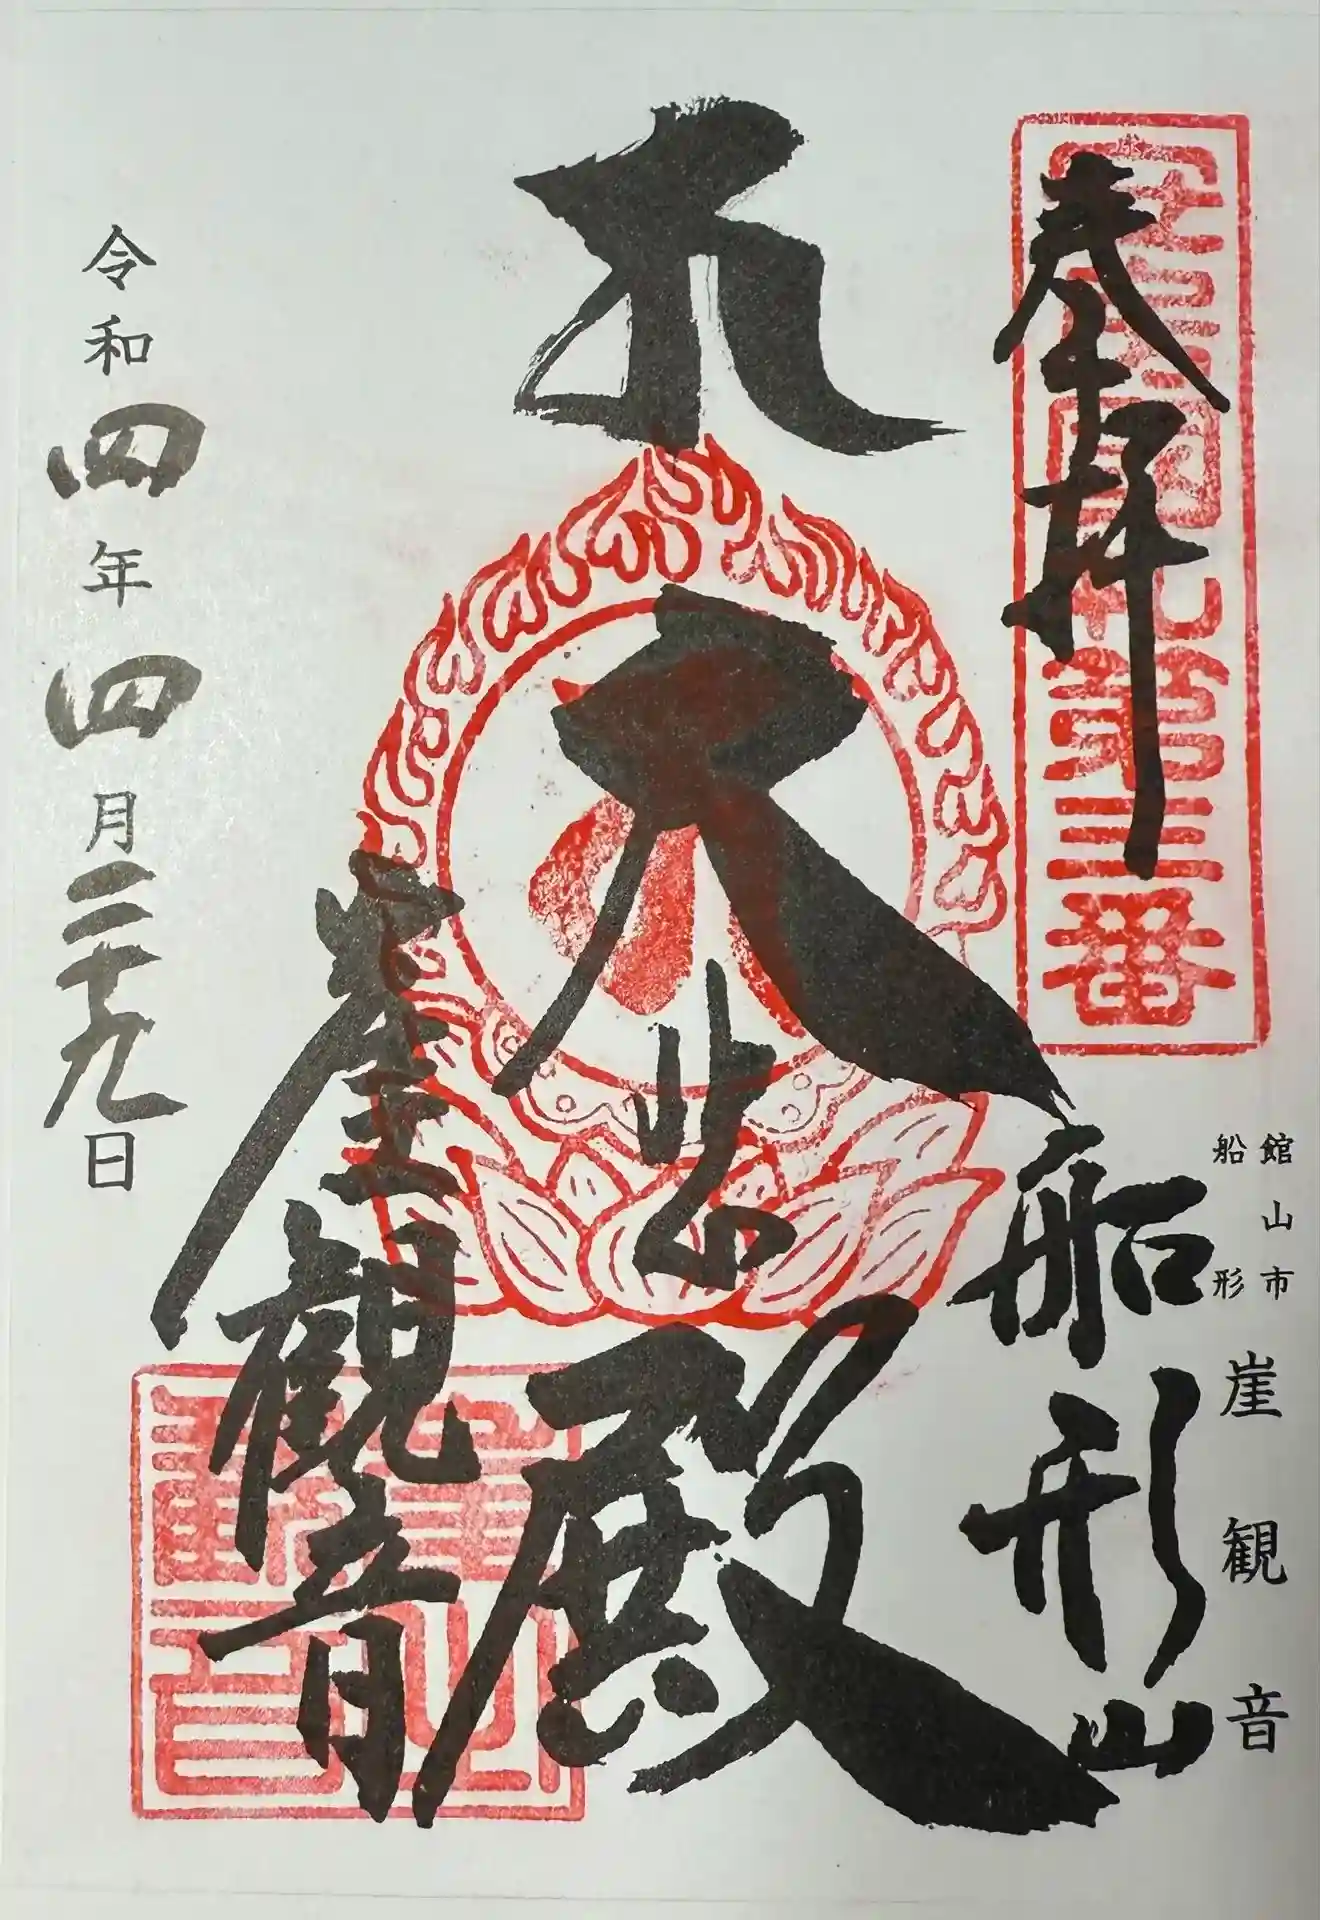 奉拝
安房國札第三番
館山市
船形
崖観音
船形山
大悲殿
崖觀音
令和四年四月二十九日